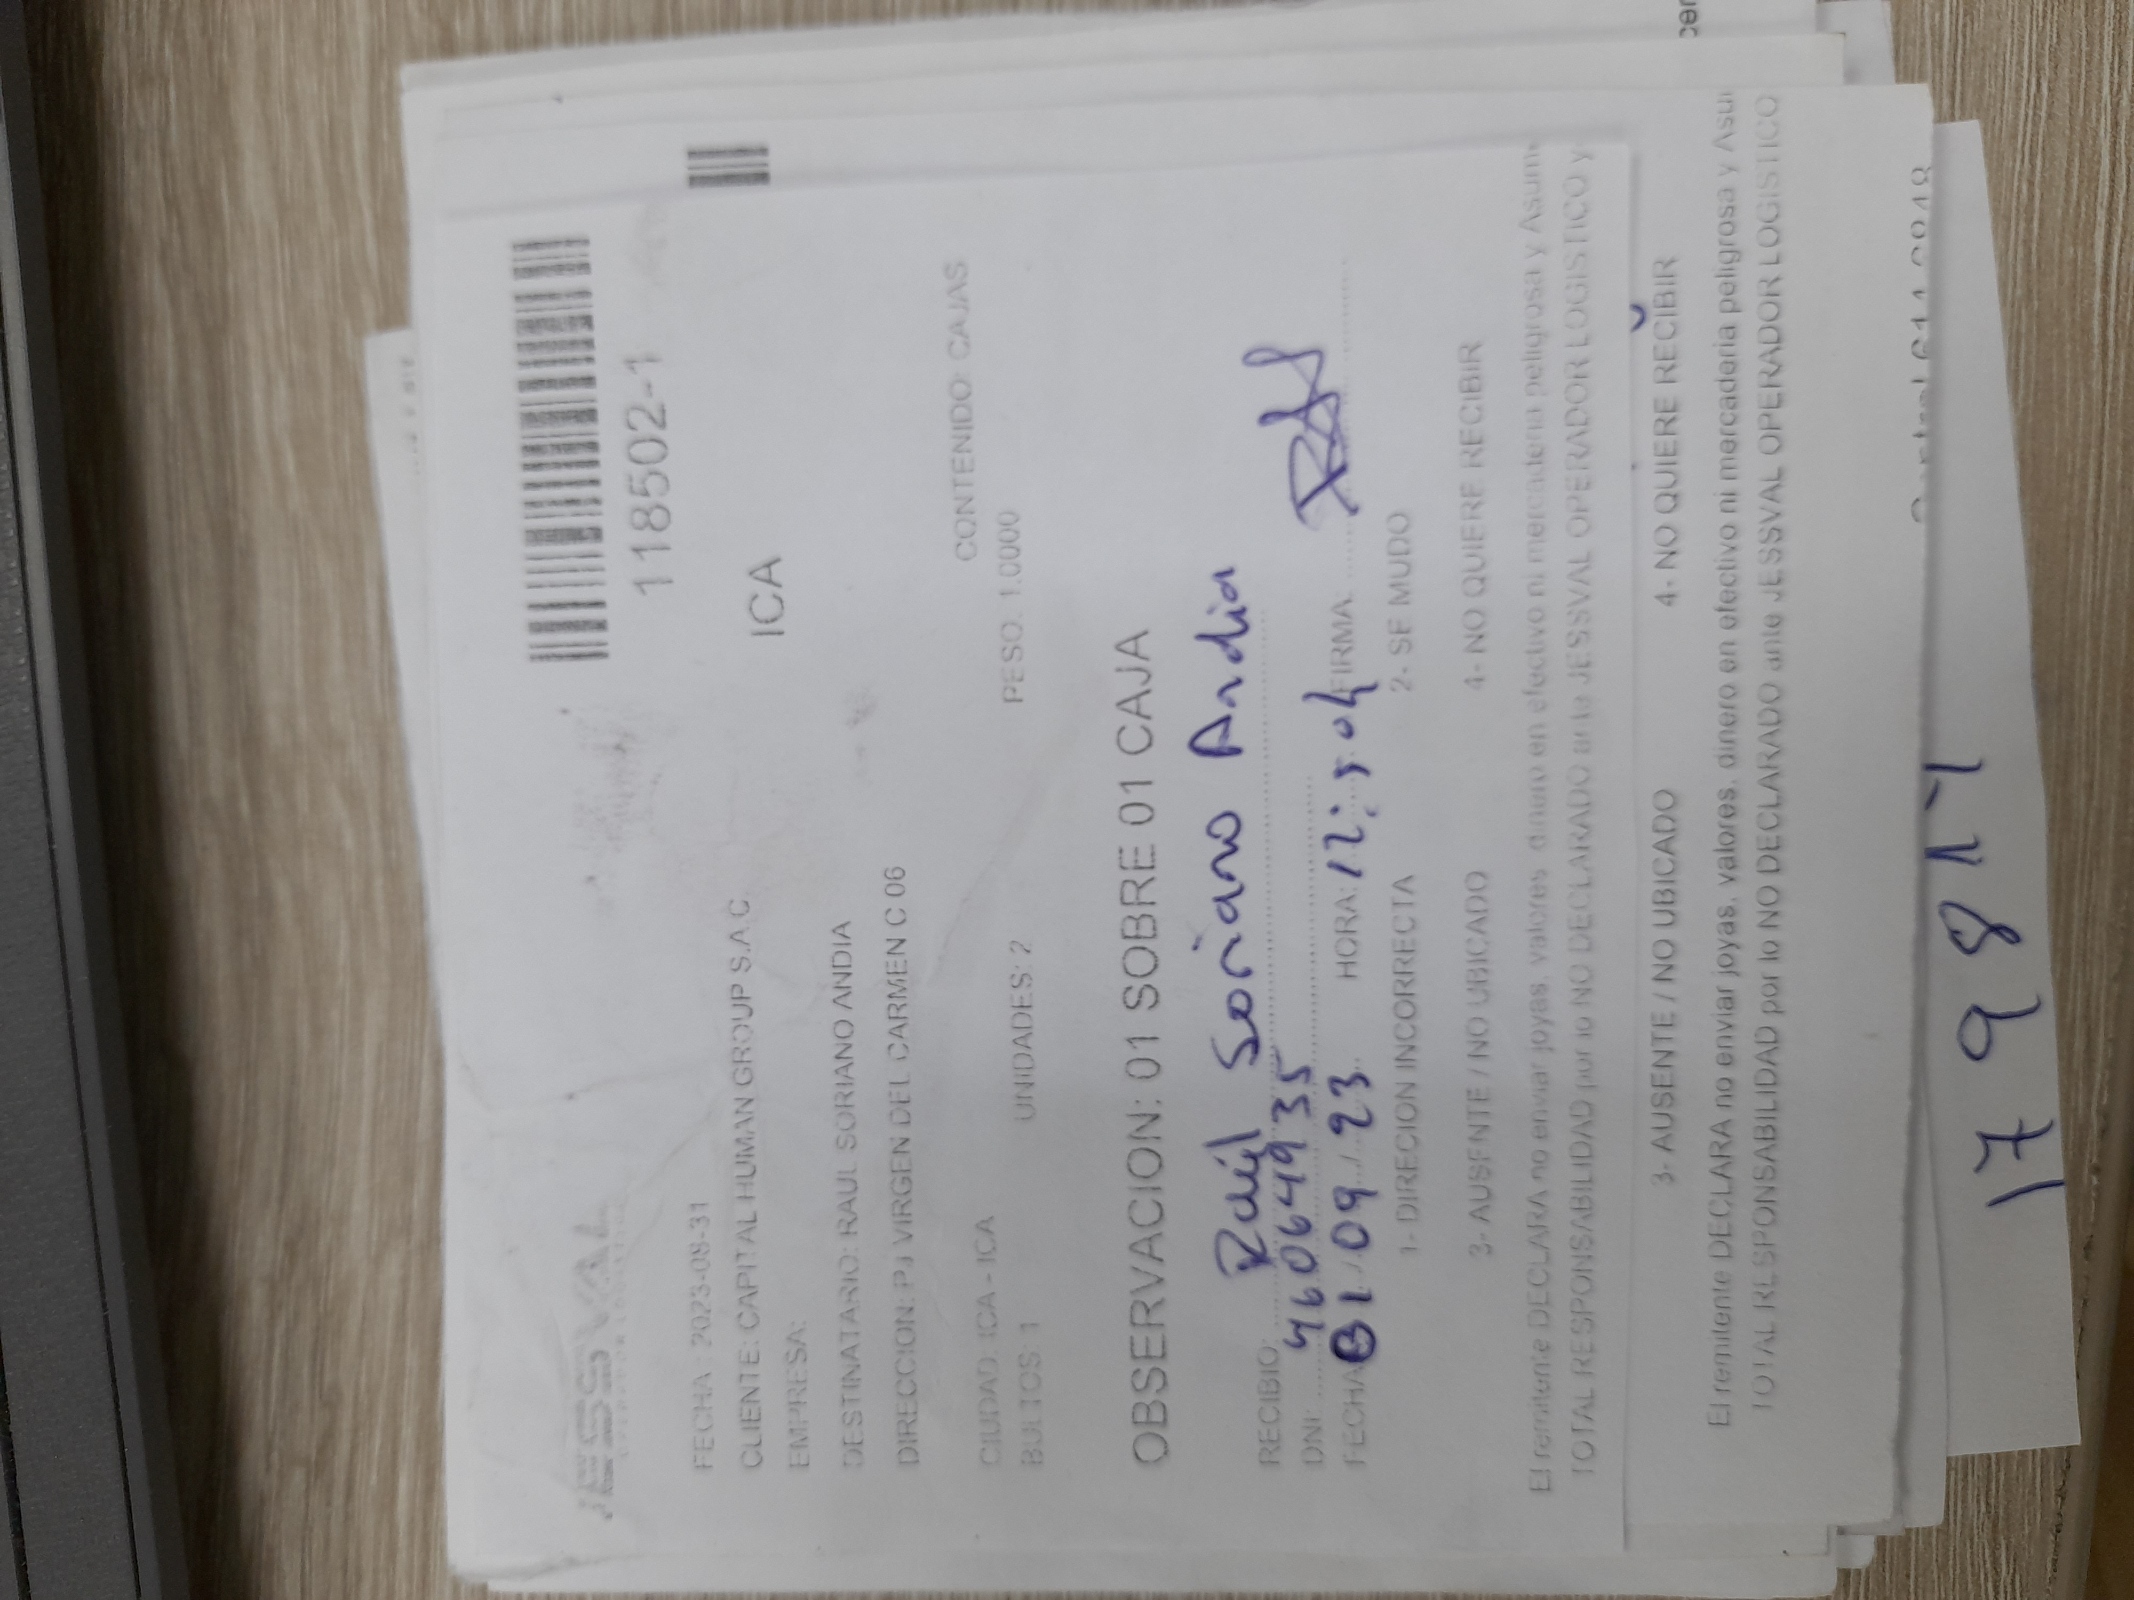 JESSVAL
118502-1
FECHA : 2023-08-31
CLIENTE: CAPITAL HUMAN GROUP S.A.C
ICA
EMPRESA:
DESTINATARIO: RAUL SORIANO ANDIA
DIRECCION: PJ VIRGEN DEL CARMEN C 06
CONTENIDO: CAJAS
CIUDAD: ICA - ICA
BULTOS: 1 UNIDADES: 2 PESO: 1.0000
OBSERVACION: 01 SOBRE 01 CAJA
RECIBIO: Raúl Soriano Andia
DNI: 46064935
FECHA 01/09/23 HORA: 12:50 FIRMA
1- DIRECION INCORRECTA 2- SE MUDO
3- AUSENTE / NO UBICADO 4- NO QUIERE RECIBIR
El remitente DECLARA no enviar joyas, valores, dinero en efectivo ni mercaderia peligrosa y Asume
TOTAL RESPONSABILIDAD por lo NO DECLARADO ante JESSVAL OPERADOR LOGISTICO y
3- AUSENTE / NO UBICADO 4- NO QUIERE RECIBIR
El remitente DECLARA no enviar joyas, valores, dinero en efectivo ni mercaderia peligrosa y Asu
TOTAL RESPONSABILIDAD por lo NO DECLARADO ante JESSVAL OPERADOR LOGISTICO